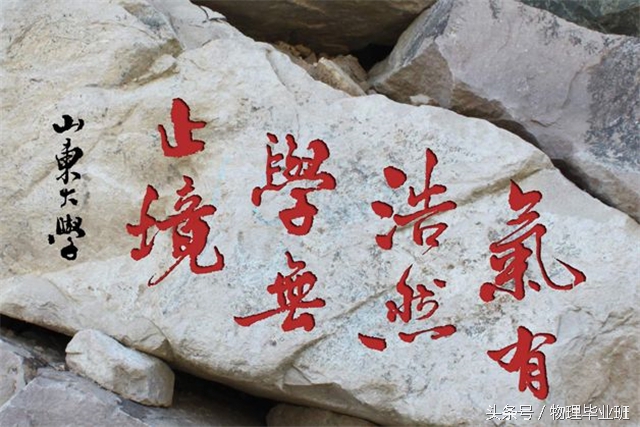 氣有
浩然
學無
止境
山東大學
头条号/物理毕业班